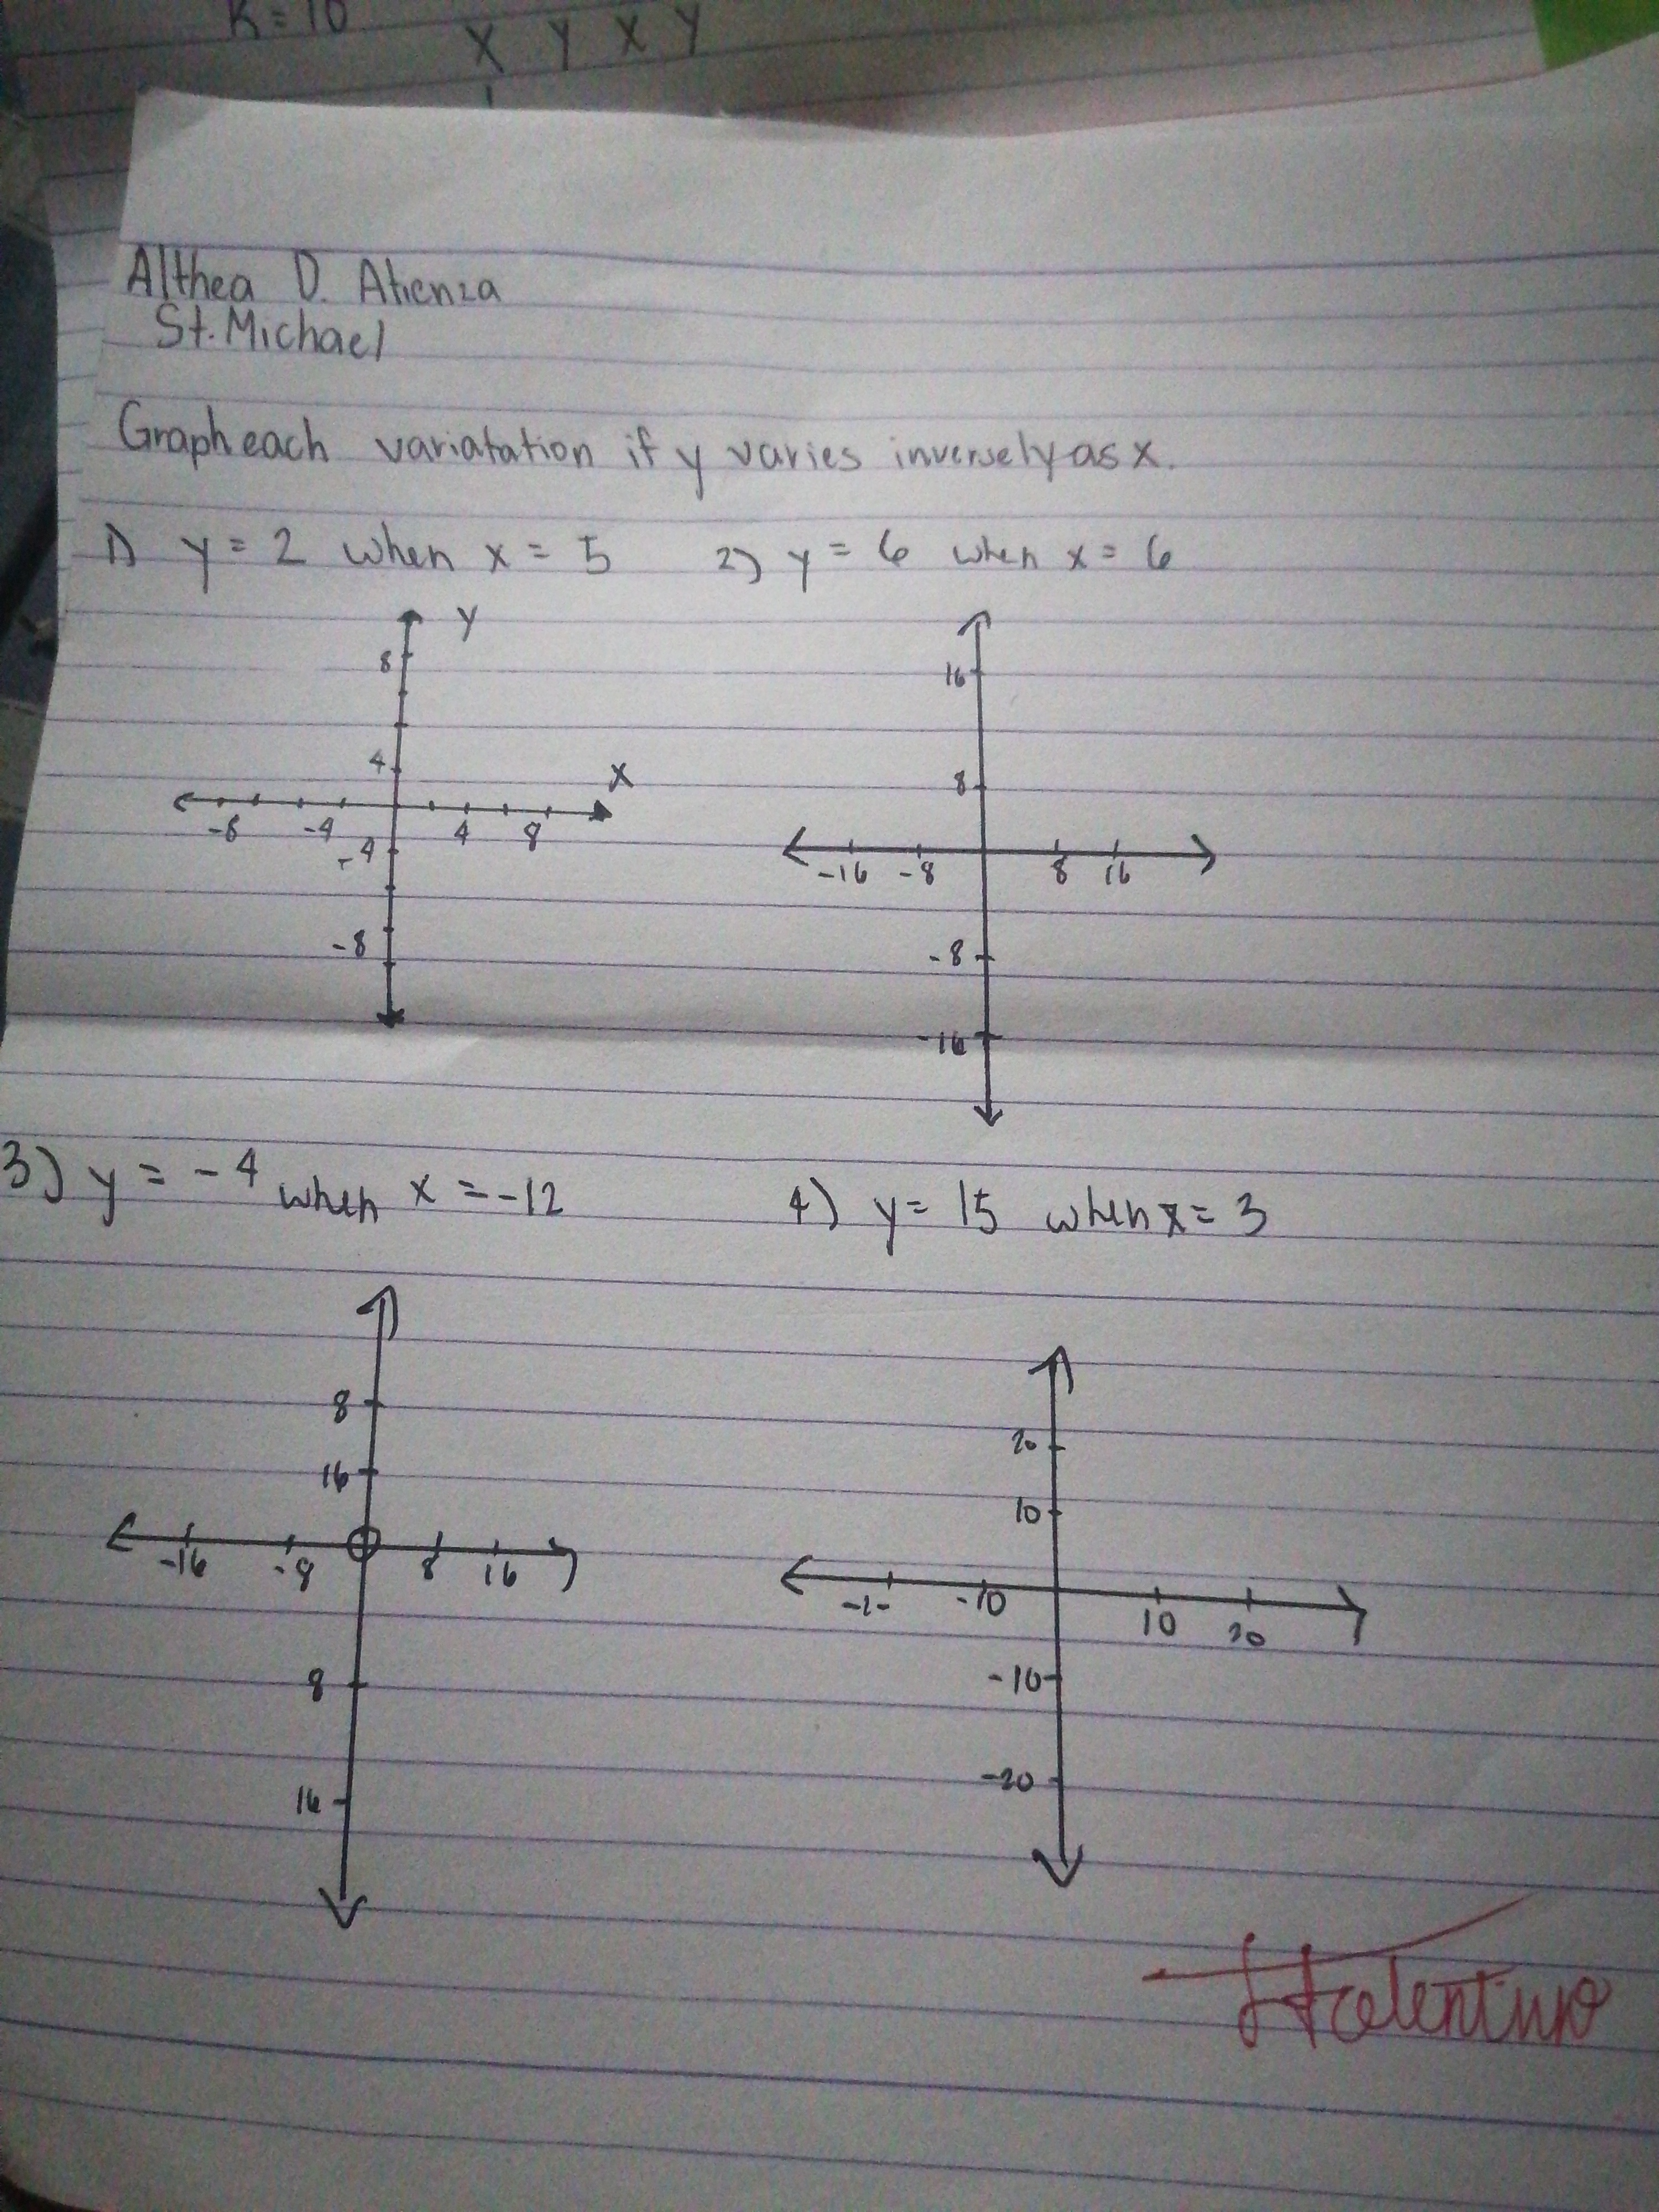 K = 10
X Y X Y
Althea D. Atienza
St. Michael
Graph each variatation if y varies inversely as x.
1) y = 2 when x = 5 2) y = 6 when x = 6
Y
8
4
X
-8 -4 4 8
-4
-8
16
8
-16 -8 8 16
-8
-16
3) y = -4 when x = -12 4) y = 15 when x = 3
8
16
-16 -8 8 16
8
16
20
10
-10 10 20
-10
-20